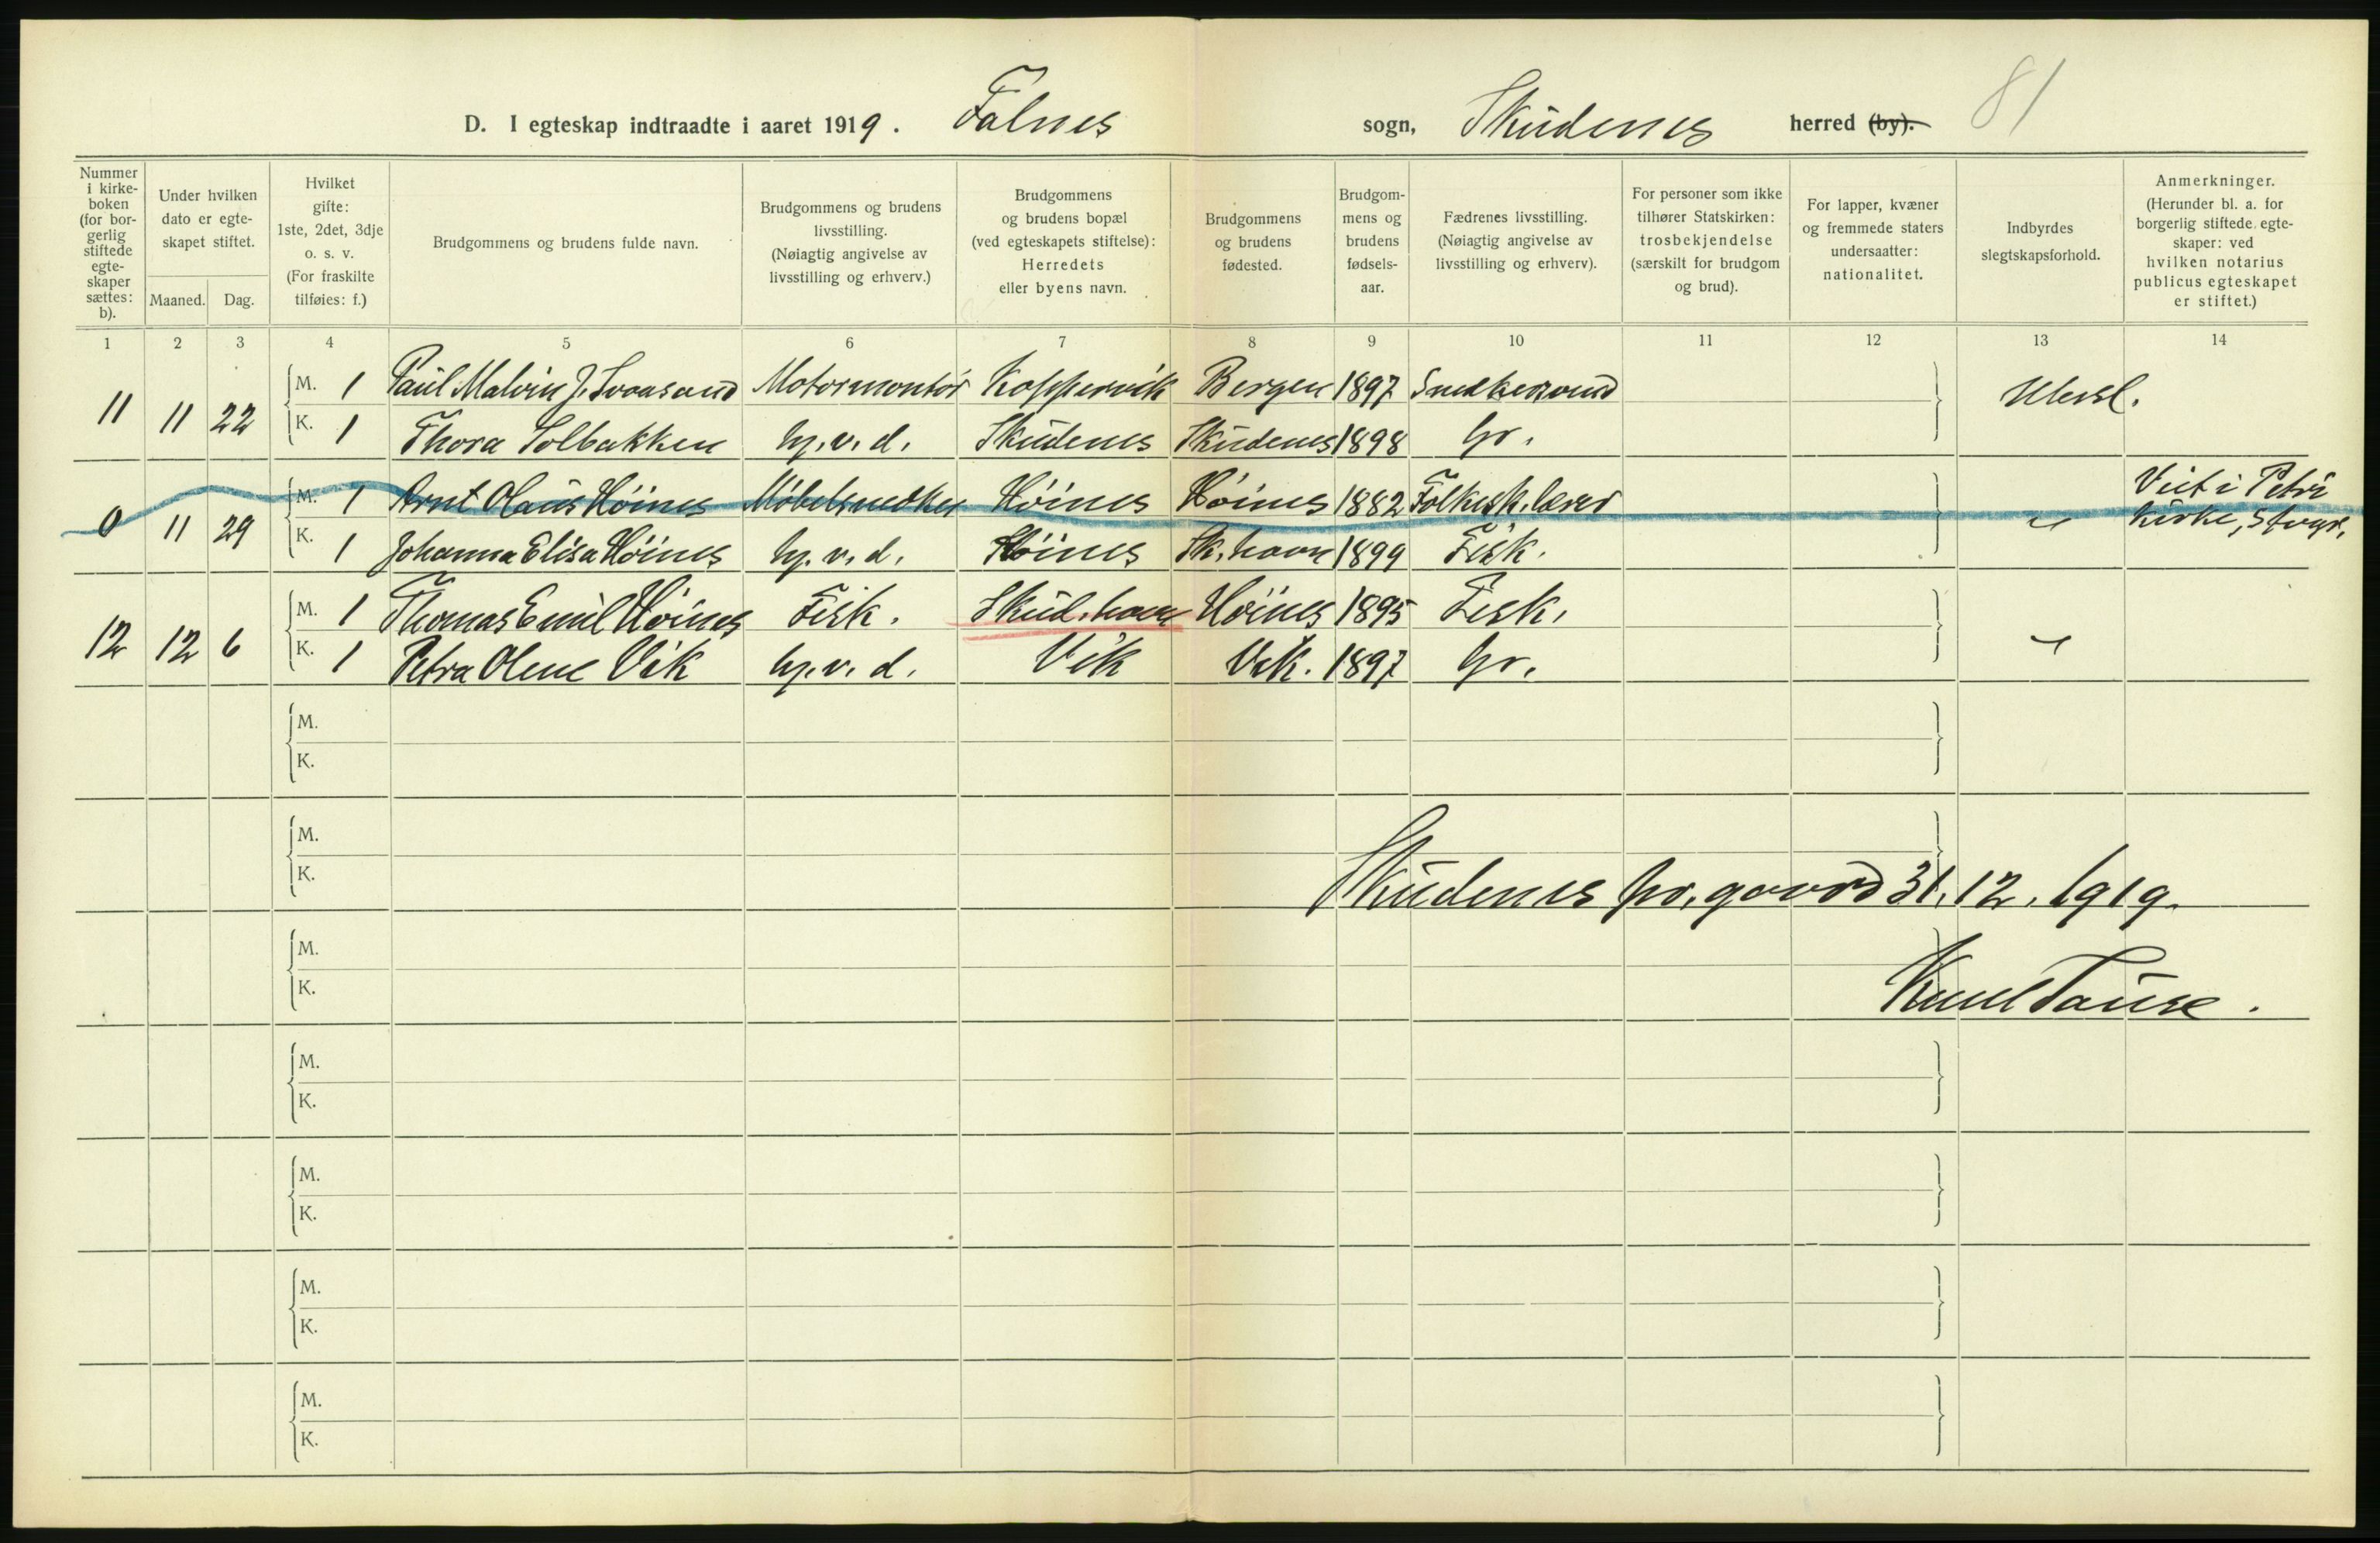 81
D. I egteskap indtraadte i aaret 1919. Falnes sogn, Skudenes herred (by).
Nummer i kirkeboken (for borgerlig stiftede egteskaper sættes: b).
Under hvilken dato er egteskapet stiftet.
Maaned. Dag.
Hvilket gifte: 1ste, 2det, 3dje o. s. v. (For fraskilte tilføies: f.)
Brudgommens og brudens fulde navn.
Brudgommens og brudens livsstilling. (Nøiagtig angivelse av livsstilling og erhverv.)
Brudgommens og brudens bopæl (ved egteskapets stiftelse): Herredets eller byens navn.
Brudgommens og brudens fødested.
Brudgommens og brudens fødselsaar.
Fædrenes livsstilling. (Nøiagtig angivelse av livsstilling og erhverv).
For personer som ikke tilhører Statskirken: trosbekjendelse (særskilt for brudgom og brud).
For lapper, kvæner og fremmede staters undersaatter: nationalitet.
Indbyrdes slegtskapsforhold.
Anmerkninger. (Herunder bl. a. for borgerlig stiftede egteskaper: ved hvilken notarius publicus egteskapet er stiftet.)
1 2 3 4 5 6 7 8 9 10 11 12 13 14
11 11 22 M. 1 Paul Malvin J. Svaasand Motormontør Koppervik Bergen 1897 Snedkersvend Ubesl.
K. 1 Thora Solbakken hj. v. d. Skudenes Skudenes 1898 Gr.
0 11 29 M. 1 Arnt Olaus Høines Møbelsnedker Høines Høines 1882 Folkesk. lærer Viet i Petri
K. 1 Johanna Elisa Høines hj. v. d. Høines Sk. havn 1899 Fisk. kirke, Stvgr.
12 12 6 M. 1 Thomas Emil Høines Fisk. Skud. havn Høines 1895 Fisk.
K. 1 Petra Olene Vik hj. v. d. Vik Vik. 1897 Gr.
M.
K.
M.
K.
Skudenes pr. gaard 31. 12. 1919.
M.
K.
M.
K.
M.
K.
M.
K.
M.
K.